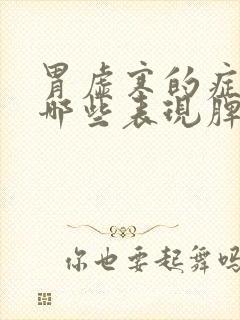 胃虚寒的症
哪些表现脾
你也要起舞吗